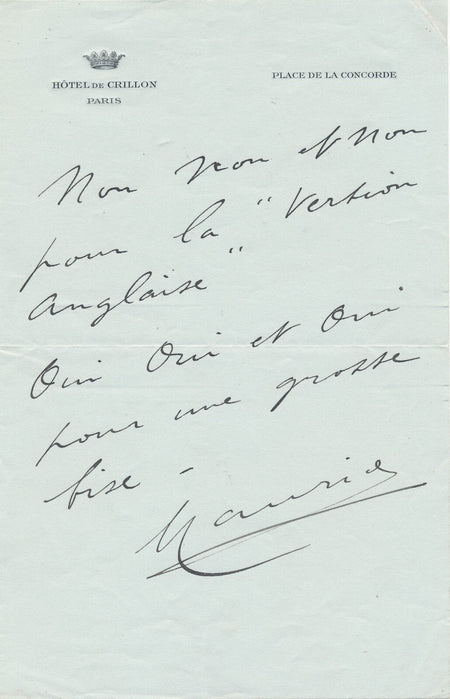 HÔTEL DE CRILLON
PARIS
PLACE DE LA CONCORDE
Non non et non
pour la "Version
Anglaise"
Oui Oui et Oui
pour une grosse
bise -
Maurice